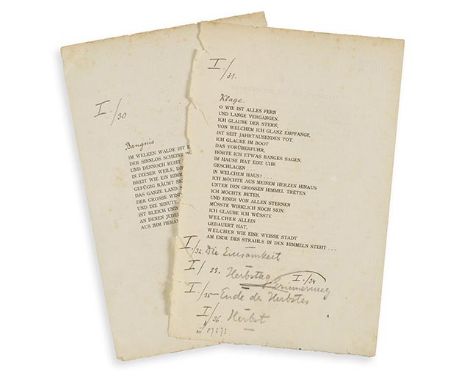 I/30
Bangnis
IM WELKEN WALDE IST
DER SINNLOS SCHEINT
UND DENNOCH RUHT
IN DIESER WEILE,
BREIT WIE EIN HIMMEL
GEFÜGIG RÄUMT SICH
DAS GANZE LAND
DER GROSSE WIND
UND DIE MINUTE
IST BLEICH UND
AN DEREN JEDER
AUS IHM
I/31.
Klage.
O WIE IST ALLES FERN
UND LANGE VERGANGEN.
ICH GLAUBE DER STERN,
VON WELCHEM ICH GLANZ EMPFANGE,
IST SEIT JAHRTAUSENDEN TOT.
ICH GLAUBE IM BOOT
DAS VORÜBERFUHR,
HÖRTE ICH ETWAS BANGES SAGEN.
IM HAUSE HAT EINE UHR
GESCHLAGEN . . .
IN WELCHEM HAUS? . .
ICH MÖCHTE AUS MEINEM HERZEN HINAUS
UNTER DEN GROSSEN HIMMEL TRETEN.
ICH MÖCHTE BETEN.
UND EINER VON ALLEN STERNEN
MÜSSTE WIRKLICH NOCH SEIN.
ICH GLAUBE ICH WÜSSTE
WELCHER ALLEIN
GEDAUERT HAT,
WELCHER WIE EINE WEISSE STADT
AM ENDE DES STRAHLS IN DEN HIMMELN STEHT . . .
I/32. Die Einsamkeit
I/33. Herbsttag I./34
Erinnerung
I/35 — Ende des Herbstes
I/36 Herbst